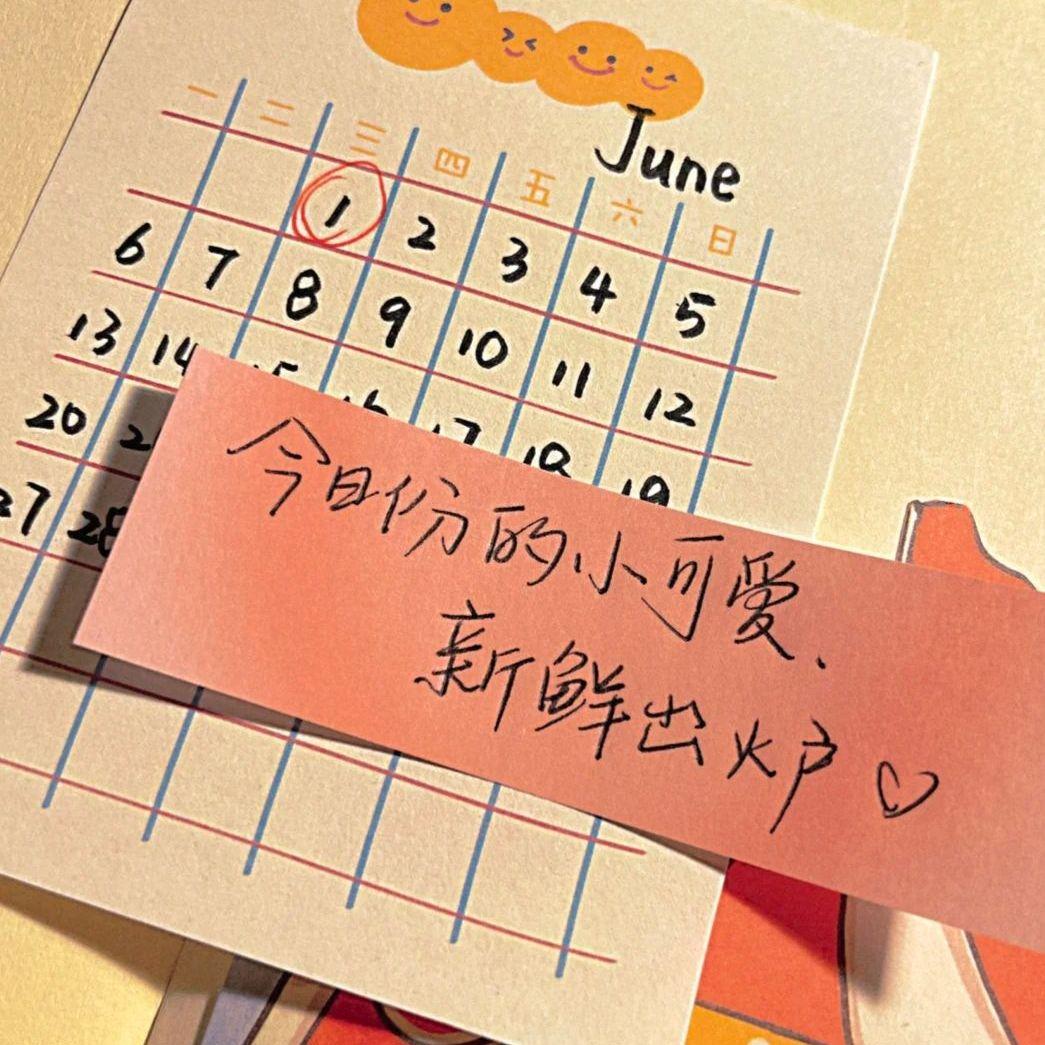 June
一 二 三 四 五 六 日
1 2 3 4 5
6 7 8 9 10 11 12
13 14 15 16 17 18 19
20
27 28
今日份的小可爱、
新鲜出炉♡